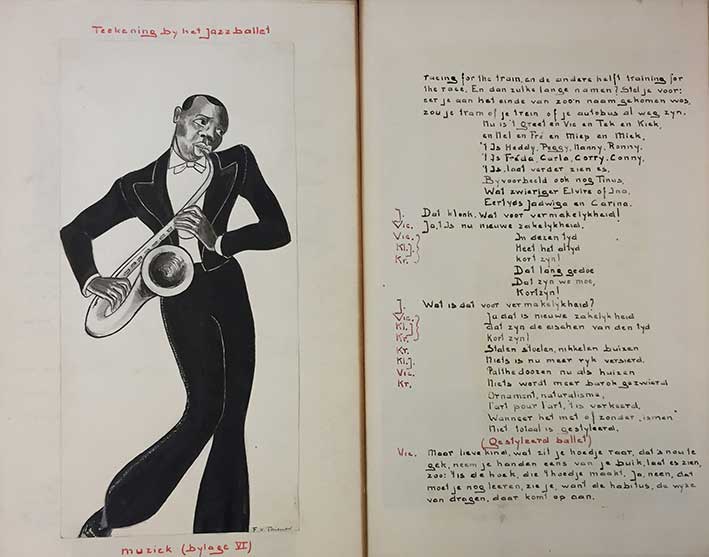 Teekening by het jazzballet
muziek (bylage VI)
racing for the train, en de andere helft training for
the race. En dan zulke lange namen? Stel je voor:
eer je aan het einde van zoo'n naam gekomen was,
zou je tram of je trein of je autobus al weg zyn.
Nu is 't Greet en Vic en Tek en Kiek,
en Nel en Fré en Miep en Miek,
't Is Heddy, Peggy, Nanny, Ronny.
't Is Fréda, Carla, Corry, Conny,
't Is, laat verder zien es,
Byvoorbeeld ook nog Tinus,
Wat zwieriger Elvire of Ina,
Eertyds Jadwiga en Carina.
J. Dat klonk. Wat voor vermakelykheid!
Vic. Ja, 't Is nu nieuwe zakelykheid.
Vic. In dezen tyd
Kl.J. Heet het altyd
Kr. kort zyn!
Dat lang gedoe
Dat zyn we moe,
Kort zyn!
J. Wat is dat voor vermakelykheid?
Vic. Ja dat is nieuwe zakelykheid
Kl.J. dat zyn de eischen van den tyd
Kr. Kort zyn!
Kr. Stalen stoelen, nikkelen buizen
Kl.J. Niets is nu meer ryk versierd,
Vic. Palthedoozen nu als huizen
Kr. Niets wordt meer barok gezwierd
Ornament, naturalisme,
l'art pour l'art, 't is verkeerd,
Wanneer het met of zonder „ismen"
Niet totaal is gestyleerd.
(Gestyleerd ballet)
Vic. Maar lieve kind, wat zit je hoedje raar, dat's nou te
gek, neem je handen eens van je buik, laat es zien,
zoo: 't is de hoek, die 't hoedje maakt. Ja, neen, dat
moet je nog leeren, zie je, want de habitus, de wyze
van dragen, daar komt op aan.